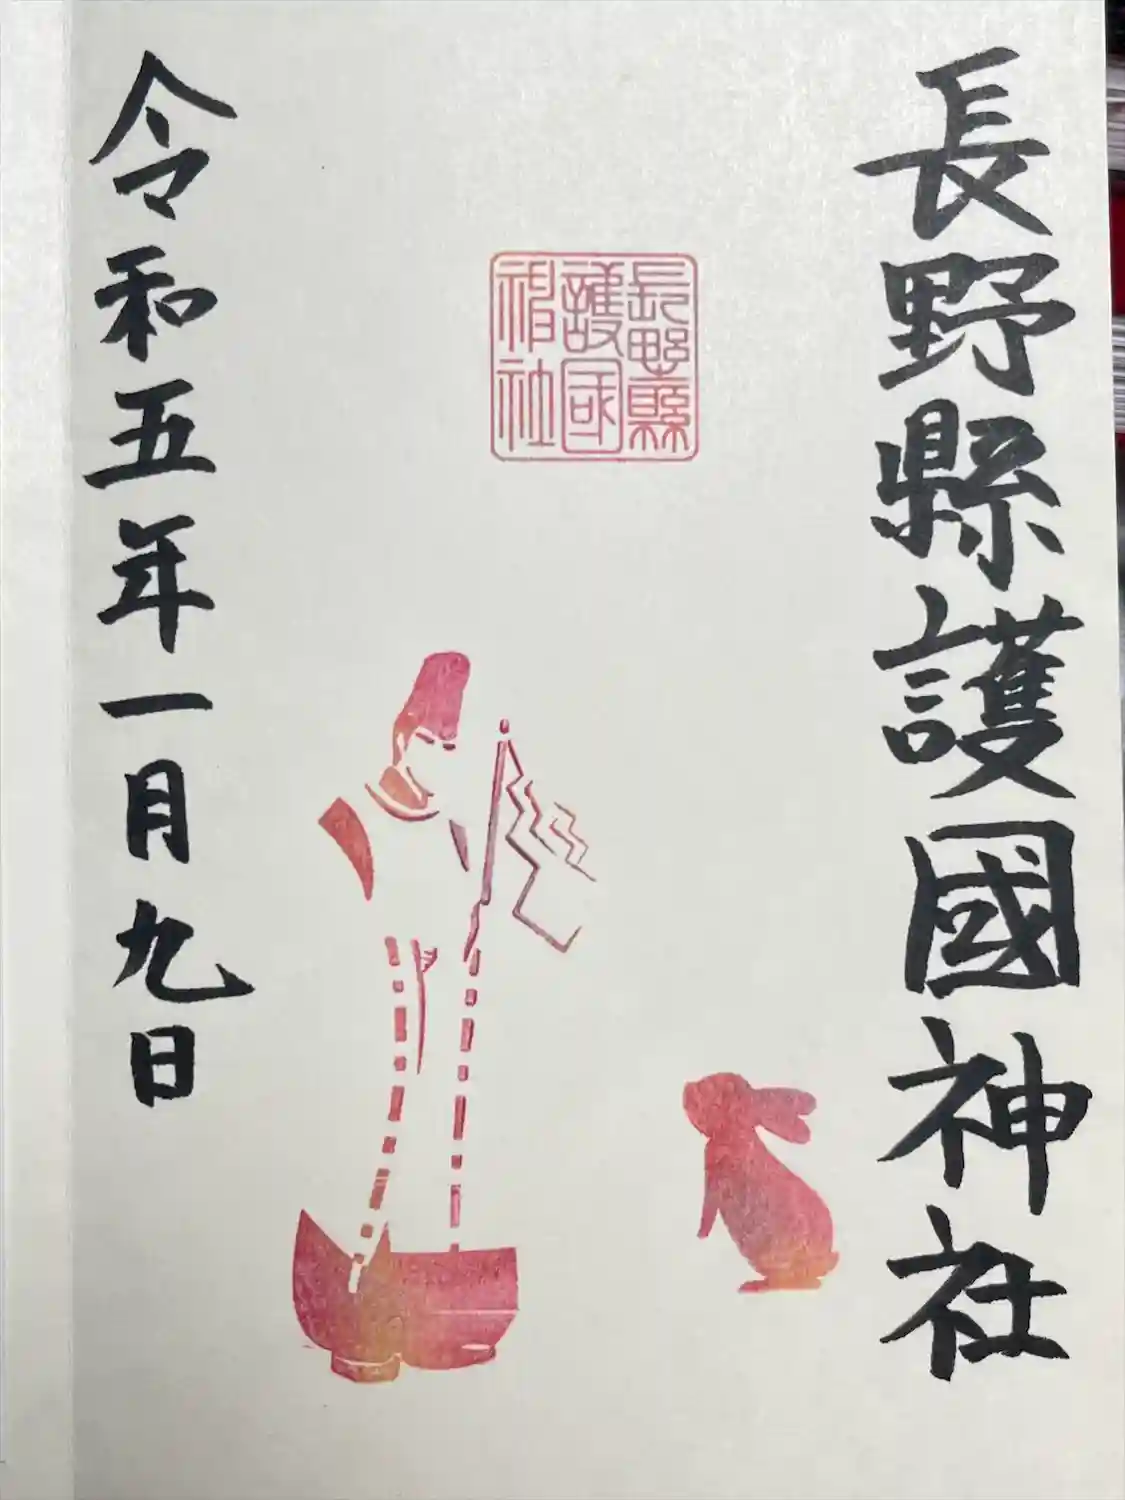 長野縣護國神社
長野縣
護國
神社
令和五年一月九日